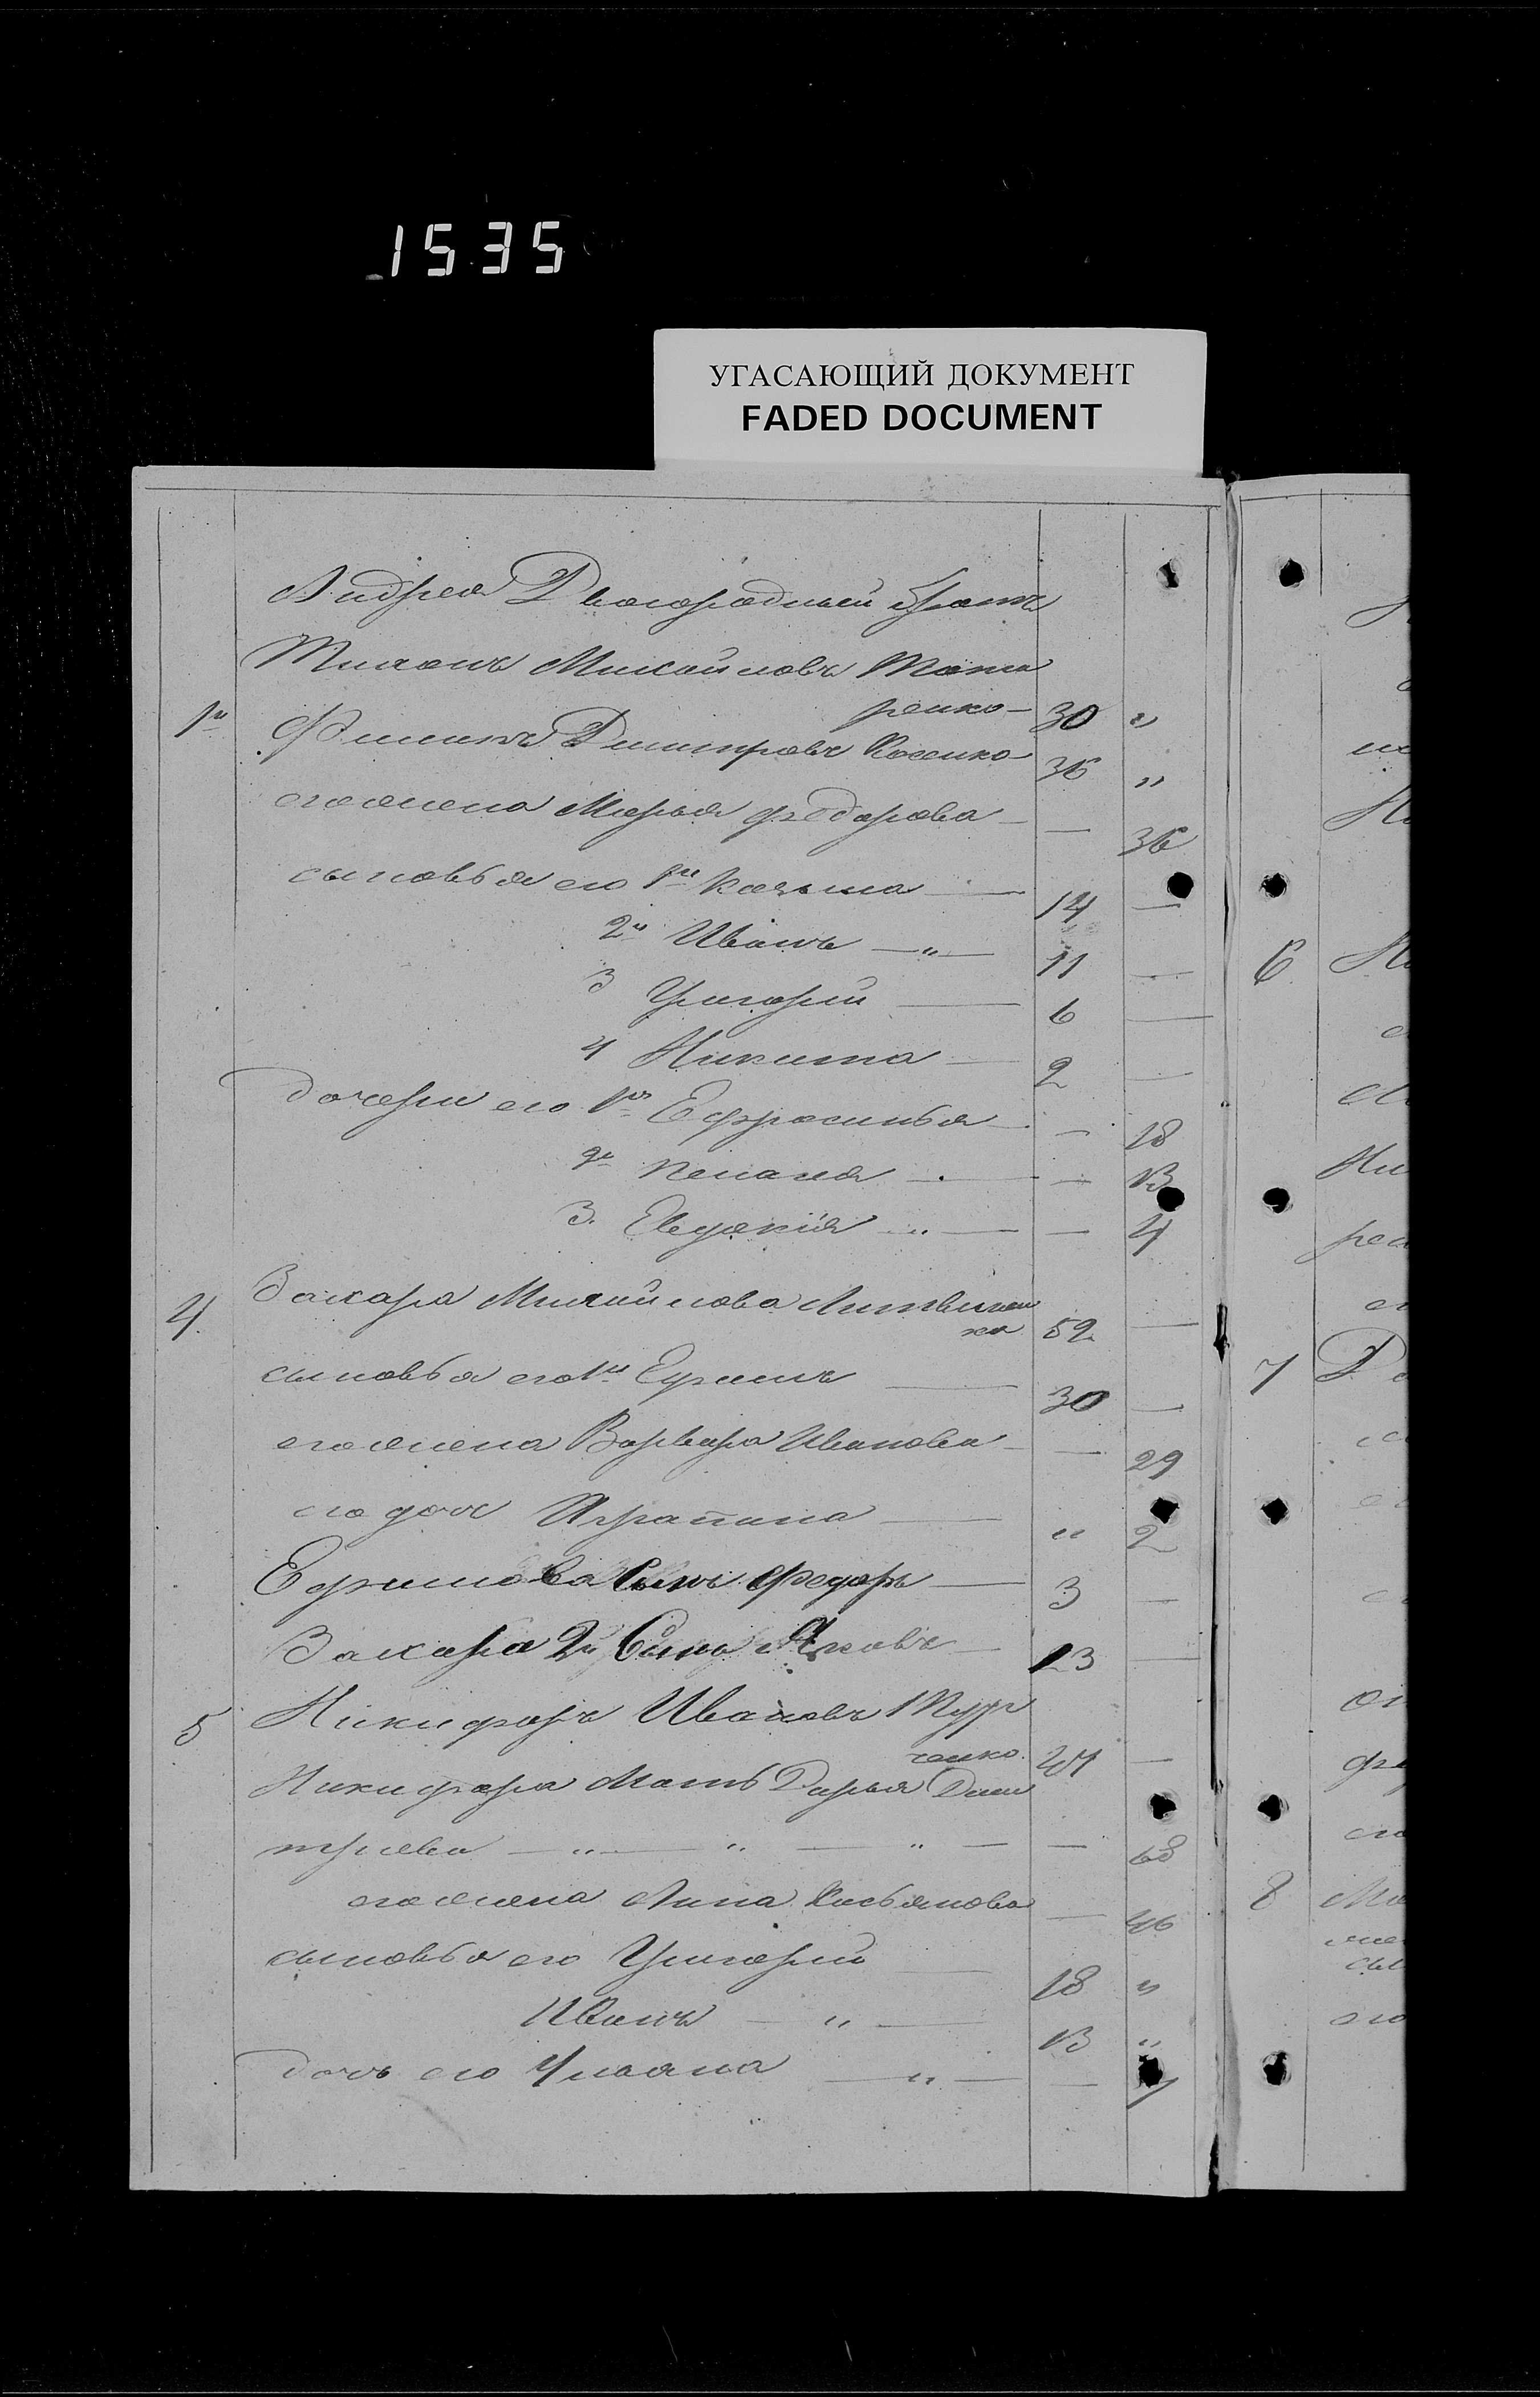 1535
УГАСАЮЩИЙ ДОКУМЕНТ
FADED DOCUMENT
Андрея Двоюродный братъ
Тихонъ Михайловъ Тата
ренко 30 "
Филипъ Дмитровъ 36 "
его жена Марья Федорова — 36
сыновья его 1й Козьма — 14 —
2й Иванъ — " — 11 —
3 Григорій — 6 —
4 Никита — 2 —
дочери его 1я Ефросинья — — 18
2я Пелагея — — 13
3. Евдокія " — — 4
4. Захара Михайлова Литвинен
ка 52 —
сыновья его 1й Ефимъ — 30 —
его жена Варвара Иванова — — 29
его дочь Аграпина — " 2
Ефимова Сынъ Федоръ — 3 —
Захара 2й Сынъ Яковъ — 23 —
5 Никифоръ Ивановъ
ченко. 47 —
Никифора Мать Дарья Дми
тріева — " — " — " — — 68
его жена Анна Касьянова — 46
сыновья его Григорій — 18 "
Иванъ — " — 13 "
дочь его Ульяна — " — — 7
6
7
8